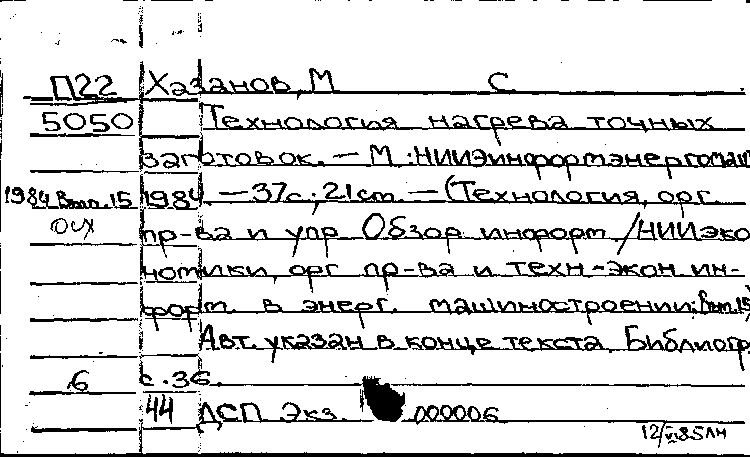 П22 Хазанов, М С.
5050 Технология нагрева точных
заготовок. – М.: НИИЭинформэнергомаш
1984 Вып. 15 1984. – 37с.; 21 см. – (Технология, орг.
пр-ва и упр. Обзор. информ. /НИИэко
номики, орг. пр-ва и техн.-экон. ин-
форм. в энерг. машиностроении; Вып. 15)
Авт. указан в конце текста. Библиогр.
6 с. 36.
44 ДСП Экз. 000006
12/VI 85